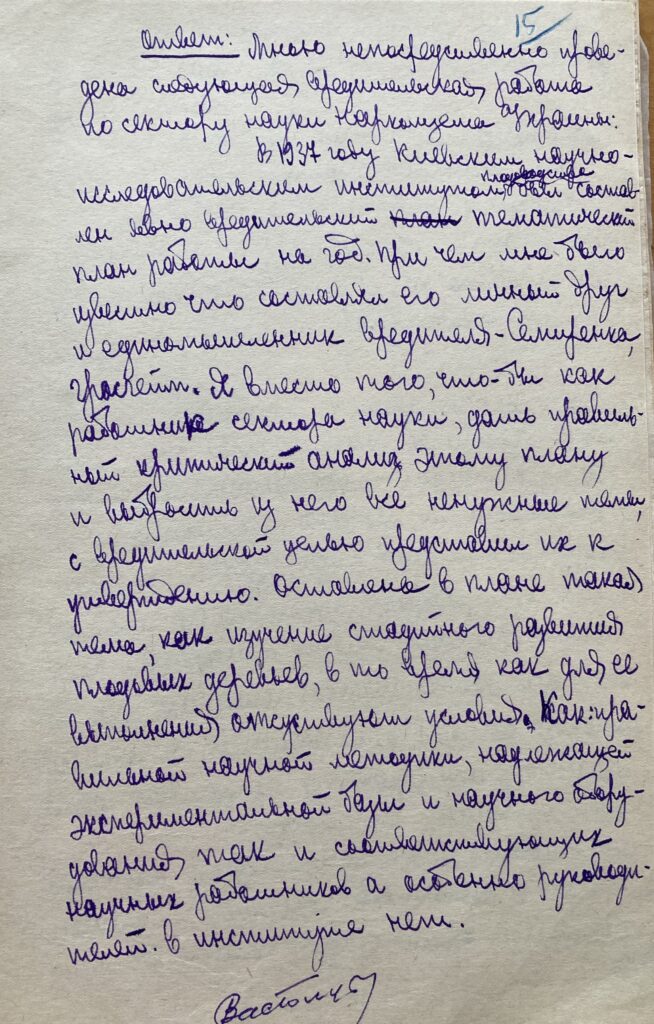 15
Ответ: Мною непосредственно прове-
дена следующая вредительская работа
по сектору науки Наркомзема Украины:
В 1937 году Киевским научно-
плодоводства
исследовательским институтом был состав-
лен явно вредительский план тематический
план работы на год. При чем мне было
известно что составлял его личный друг
и единомышленник вредителя-Семиренка,
Я вместо того, что-бы как
работник сектора науки, дать правиль-
ный критический анализ этому плану
и выбросить из него все ненужные темы,
с вредительской целью представил их к
утверждению. Оставлена в плане такая
тема, как изучение стадийного развития
плодовых деревьев, в то время как для ее
выполнения отсуствуют условия. Как: пра-
вильной научной методики, надлежащей
экспериментальной базы и научного обору-
дования, так и соответствующих
научных работников а особенно руководи-
телей. в институте нет.